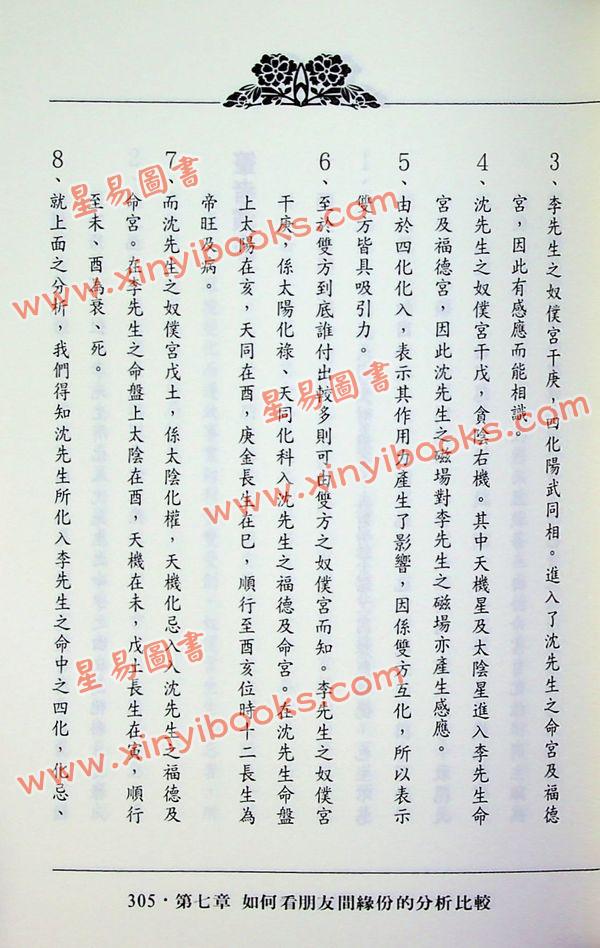 3、李先生之奴僕宮干庚，四化陽武同相。進入了沈先生之命宮及福德
宮，因此有感應而能相識。
4、沈先生之奴僕宮干戊，貪陰右機。其中天機星及太陰星進入李先生命
宮及福德宮，因此沈先生之磁場對李先生之磁場亦產生感應。
5、由於四化化入，表示其作用力產生了影響，因係雙方互化，所以表示
雙方皆具吸引力。
6、至於雙方到底誰付出較多則可由雙方之奴僕宮而知。李先生之奴僕宮
干庚，係太陽化祿、天同化科入沈先生之福德及命宮。在沈先生命盤
上太陽在亥，天同在酉，庚金長生在巳，順行至酉亥位時十二長生為
帝旺及病。
7、而沈先生之奴僕宮戊土，係太陰化權，天機化忌入入沈先生之福德及
命宮。在李先生之命盤上太陰在酉，天機在未，戊土長生在寅，順行
至未、酉為衰、死。
8、就上面之分析，我們得知沈先生所化入李先生之命中之四化，化忌、
305·第七章 如何看朋友間緣份的分析比較
星易圖書
www.xinyibooks.com
星易圖書
www.xinyibooks.com
星易圖書
www.xinyibooks.com